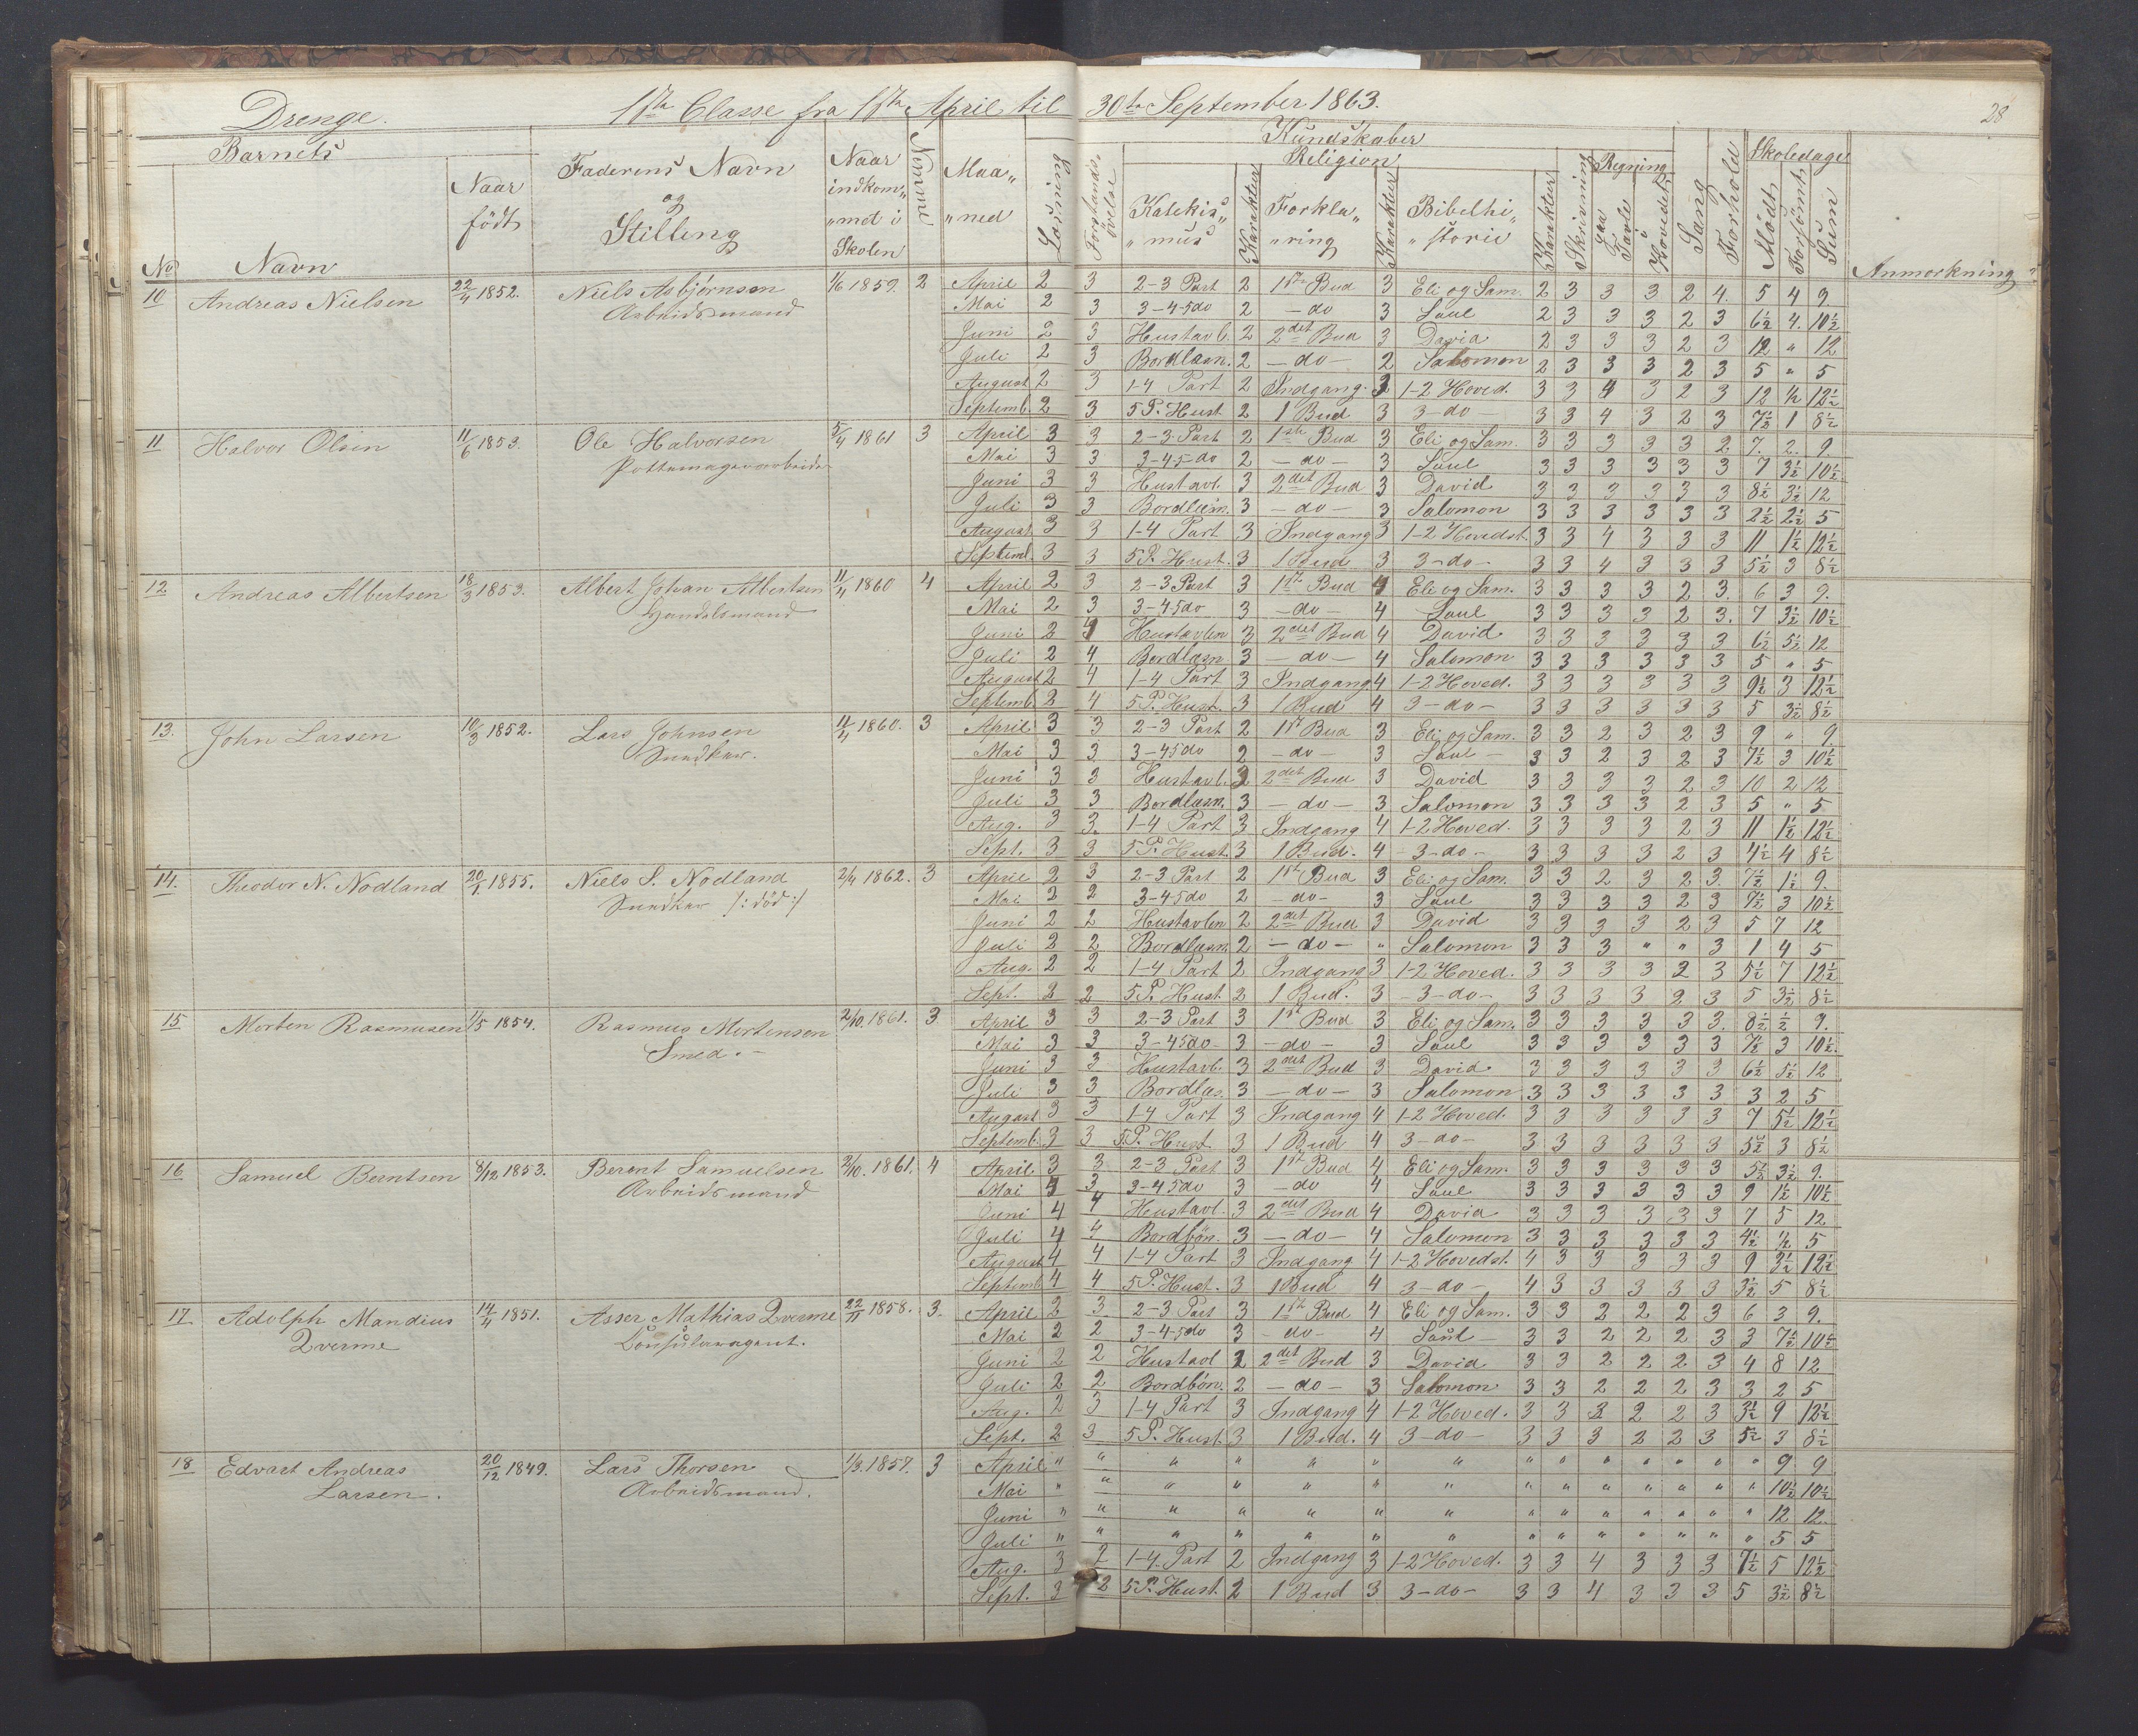 Drenge. 1ste Classe fra 1ste April til 30te September 1863. 28
Barnets
No Navn Naar født Faderens Navn og Stilling Naar indkom„ „met i Skolen Normne Maa„ „ned Læsning Forstands„ øvelse Kundskaber Religion Katekis„ „mus Karakteer Forkla„ „ring Karakteer Bibelhi„ „storie Karakteer Skrivning Regning paa Tavle i Hovedet Sang Forhold Skoledage Mødt Forsømt Sum Anmærkning
10 Andreas Nielsen 22/4 1852. Niels Asbjørnsen 1/6 1859. 2 April 2 3 2-3 Part 2 1ste Bud 3 Eli og Sam. 2 3 3 3 2 4. 5 4 9
Arbeidsmand Mai 2 3 3-4-5 do 2 -do 3 Saul 2 3 3 3 2 3 6½ 4. 10½
Juni 2 3 Hustavl. 2 2det Bud 3 David 2 3 3 3 2 3 12 " 12
Juli 2 3 Bordlæsn. 2 -do- 2 Salomon 2 3 3 3 2 3 5 " 5
August 2 3 1-4 Part 2 Indgang. 3 1-2 Hoved. 3 3 4 3 2 3 12 ½ 12½
Septemb. 2 3 5 P. Hust. 2 1 Bud 3 3-do- 3 3 4 3 2 3 7½ 1 8½
11 Halvor Olsen 11/6 1853. Ole Halvorsen 5/4 1861 3 April 3 3 2-3 Part 2 1ste Bud 3 Eli og Sam. 3 3 3 3 3 2 7. 2. 9.
Pottemagerarbeider Mai 3 3 3-4-5 do 2 -do- 3 Saul 3 3 3 3 3 3 7 3½ 10½
Juni 3 3 Hustavl. 3 2det Bud 3 David 3 3 3 3 3 3 8½ 3½ 12
Juli 3 3 Bordlæsn. 3 -do- 3 Salomon 3 3 3 3 3 3 2½ 2½ 5
August 3 3 1-4 Part 3 Indgang 3 1-2 Hovedst. 3 3 4 3 3 3 11 1½ 12½
Septemb. 3 3 5 P. Hust. 3 1 Bud 3 3-do- 3 3 4 3 3 3 5½ 3 8½
12 Andreas Albertsen 18/3 1853. Albert Johan Albertsen 11/4 1860 4 April 2 3 2-3 Part 3 1ste Bud 4 Eli og Sam. 3 3 3 3 2 3. 6 3 9.
Handelsmand Mai 2 3 3-4 5 do 3 -do- 4 Saul 3 3 3 3 2 3. 7 3½ 10½
Juni 2 4 Hustavlen 3 2det Bud 4 David 3 3 3 3 3 3 6½ 5½ 12
Juli 2 4 Bordlæsn 3 -do- 4 Salomon 3 3 3 3 3 3 5 " 5
August 2 4 1-4 Part 3 Indgang 4 1-2 Hoved. 3 3 3 3 3 3 9½ 3 12½
Septemb. 2 4 5 P. Hust. 3 1 Bud 4 3-do- 3 3 3 3 3 3 5 3½ 8½
13. John Larsen 10/3 1852. Lars Johnsen 11/4 1860. 3 April 3 3 2-3 Part 2 1ste Bud 3 Eli og Sam. 3 3 2 3 2 3 9 " 9.
Mai 3 3 3-4 5 do 2 -do- 3 Saul - 3 3 2 3 2 3 7½ 3 10½
Juni 3 3 Hustavl. 3 2det Bud 3 David 3 3 3 3 2 3 10 2 12
Juli 3 3 Bordlæsn. 3 -do- 3 Salomon 3 3 3 3 2 3 5 " 5
Aug. 3 3. 1-4 Part 3 Indgang 4 1-2 Hoved. 3 3 3 3 2 3 11 1½ 12½
Sept. 3 3 5 P. Hust. 3 1 Bud. 4 -3-do- 3 3 3 3 2 3 4½ 4 8½
14. Theodor N. Nodland 20/1 1855. Niels S. Nodland 2/4 1862. 3 April 2 3 2-3 Part 2 1ste Bud 3 Eli og Sam. 3 3 2 3 2 3. 7½ 1½ 9.
/: død :/ Mai 2 2 3-4 5 do 2 -do- 3 Saul 3 3 3 3 2 3 7½ 3 10½
Juni 2 2 Hustavlen 2 2det Bud 3 David 3 3 3 3 2 3 5 7 12
Juli 2 2 Bordlæsn. 2 -do- " Salomon 3 3 3 " " 3 1 4 5
Aug. 2 2 1-4 Part 2 Indgang 3 1-2 Hoved. 3 3 3 3 2 3 5½ 7 12½
Sept. 2 2 5 P. Hust. 2 1 Bud. 3 -3-do- 3 3 3 3 2 3 5 3½ 8½
15 Morten Rasmusen 1/5 1854. Rasmus Mortensen 2/10. 1861. 3 April 3 3 2-3 Part 3 1ste Bud 3 Eli og Sam. 3 3 3 3 3 3. 8½ ½ 9.
Smed. - Mai 3 3 3-4 5 do 3 -do- 3 Saul 3 3 3 3 3 3 7½ 3 10½
Juni 3 3 Hustavl. 3 2det Bud 3 David 3 3 3 3 3 3 6½ 5½ 12
Juli 3 3 Bordlæs. 3 -do- 3 Salomon 3 3 3 3 3 3 3 2 5
August 3 3 1-4 Part 3 Indgang 4 1-2 Hoved. 3 3 3 3 3 3 7 5½ 12½
Septemb. 3 3 5. P. Hust. 3 1 Bud 4 3-do- 3 3 3 3 3 3 5½ 3 8½
16 Samuel Berntsen 8/12 1853. Berent Samuelsen 2/10. 1861. 4 April 3 3 2-3 Part 3 1ste Bud 4 Eli og Sam. 3 3 3 3 3 3 5½ 3½ 9.
Arbeidsmand Mai 3 3 3-4 5 do 3 -do 4 Saul 3 3 3 3 3 3 9 1½ 10½
Juni 4 4 Hustavl. 3 2det Bud 4 David 3 3 3 3 3 3 7 5 12
Juli 4 4 Bordbøn. 3 -do- 4 Salomon 3 3 3 3 3 3 4½ ½ 5
August 4 4 1-4 Part 3 Indgang 4 1-2 Hovedst. 4 3 3 3 3 3 9 3½ 12½
Septemb. 4 4 5 P. Hust. 3 1 Bud 4 3-do- 4 3 3 3 3 3 3½ 5 8½
17 Adolph Mandius 14/4 1851. Asser Mathias Qverme 22/11 1858. 3. April 2 3 2-3 Part 3 1ste Bud 4 Eli og Sam. 3 3 2 2 2 3 6 3 9.
Qverme Consularagent. Mai 2 2 3-4-5 do 3 -do- 4 Saul - 3 3 2 2 2 3 3 7½ 10½
Juni 2 2 Hustavl 2 2det Bud 3 David 3 3 2 2 2 3 4 8 12
Juli 2 2 Bordbøn. 2 -do- 3 Salomon 3 3 2 2 2 3 3 2 5
Aug. 2 3 1-4 Part 3 Indgang 4 1-2 Hoved. 3 3 3 2 2 3 3½ 9 12½
Sept. 2 3 5 P. Hust. 3 1 Bud. 4 3-do- 3 3 3 2 2 3 5½ 3 8½
18 Edvart Andreas 20/12 1849. Lars Thorsen 1/3. 1857. 3 April " " " " " " " " " " " " " " 9 9
Larsen. Arbeidsmand. Mai " " " " " " " " " " " " " " 10½ 10½
Juni " " " " " " " " " " " " " " 12 12.
Juli " " " " " " " " " " " " " " 5 5
Aug. 3 2 1-4 Part 2 Indgang 3 1-2 Hoved. 3 3 4 3 3 3 7½ 5 12½
Sept. 3 2 5 P. Hust. 2 1 Bud 3 3-do- 3 3 4 3 3 3 5 3½ 8½